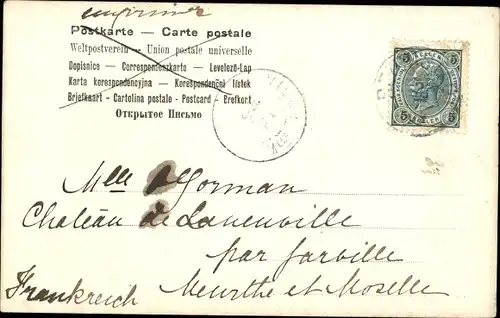 imprimée
Postkarte — Carte postale
Weltpostverein - Union postale universelle
Dopisnice - Correspondenzkarte - Levelező-Lap
Karta korespondencyjna - Korespondenční lístek
Briefkaart - Cartolina postale - Postcard - Brefkort
Открытое Письмо
5 5
5 5
Mlle O'Gorman
Château de Laneuville
par Jarville
Frankreich Meurthe et Moselle